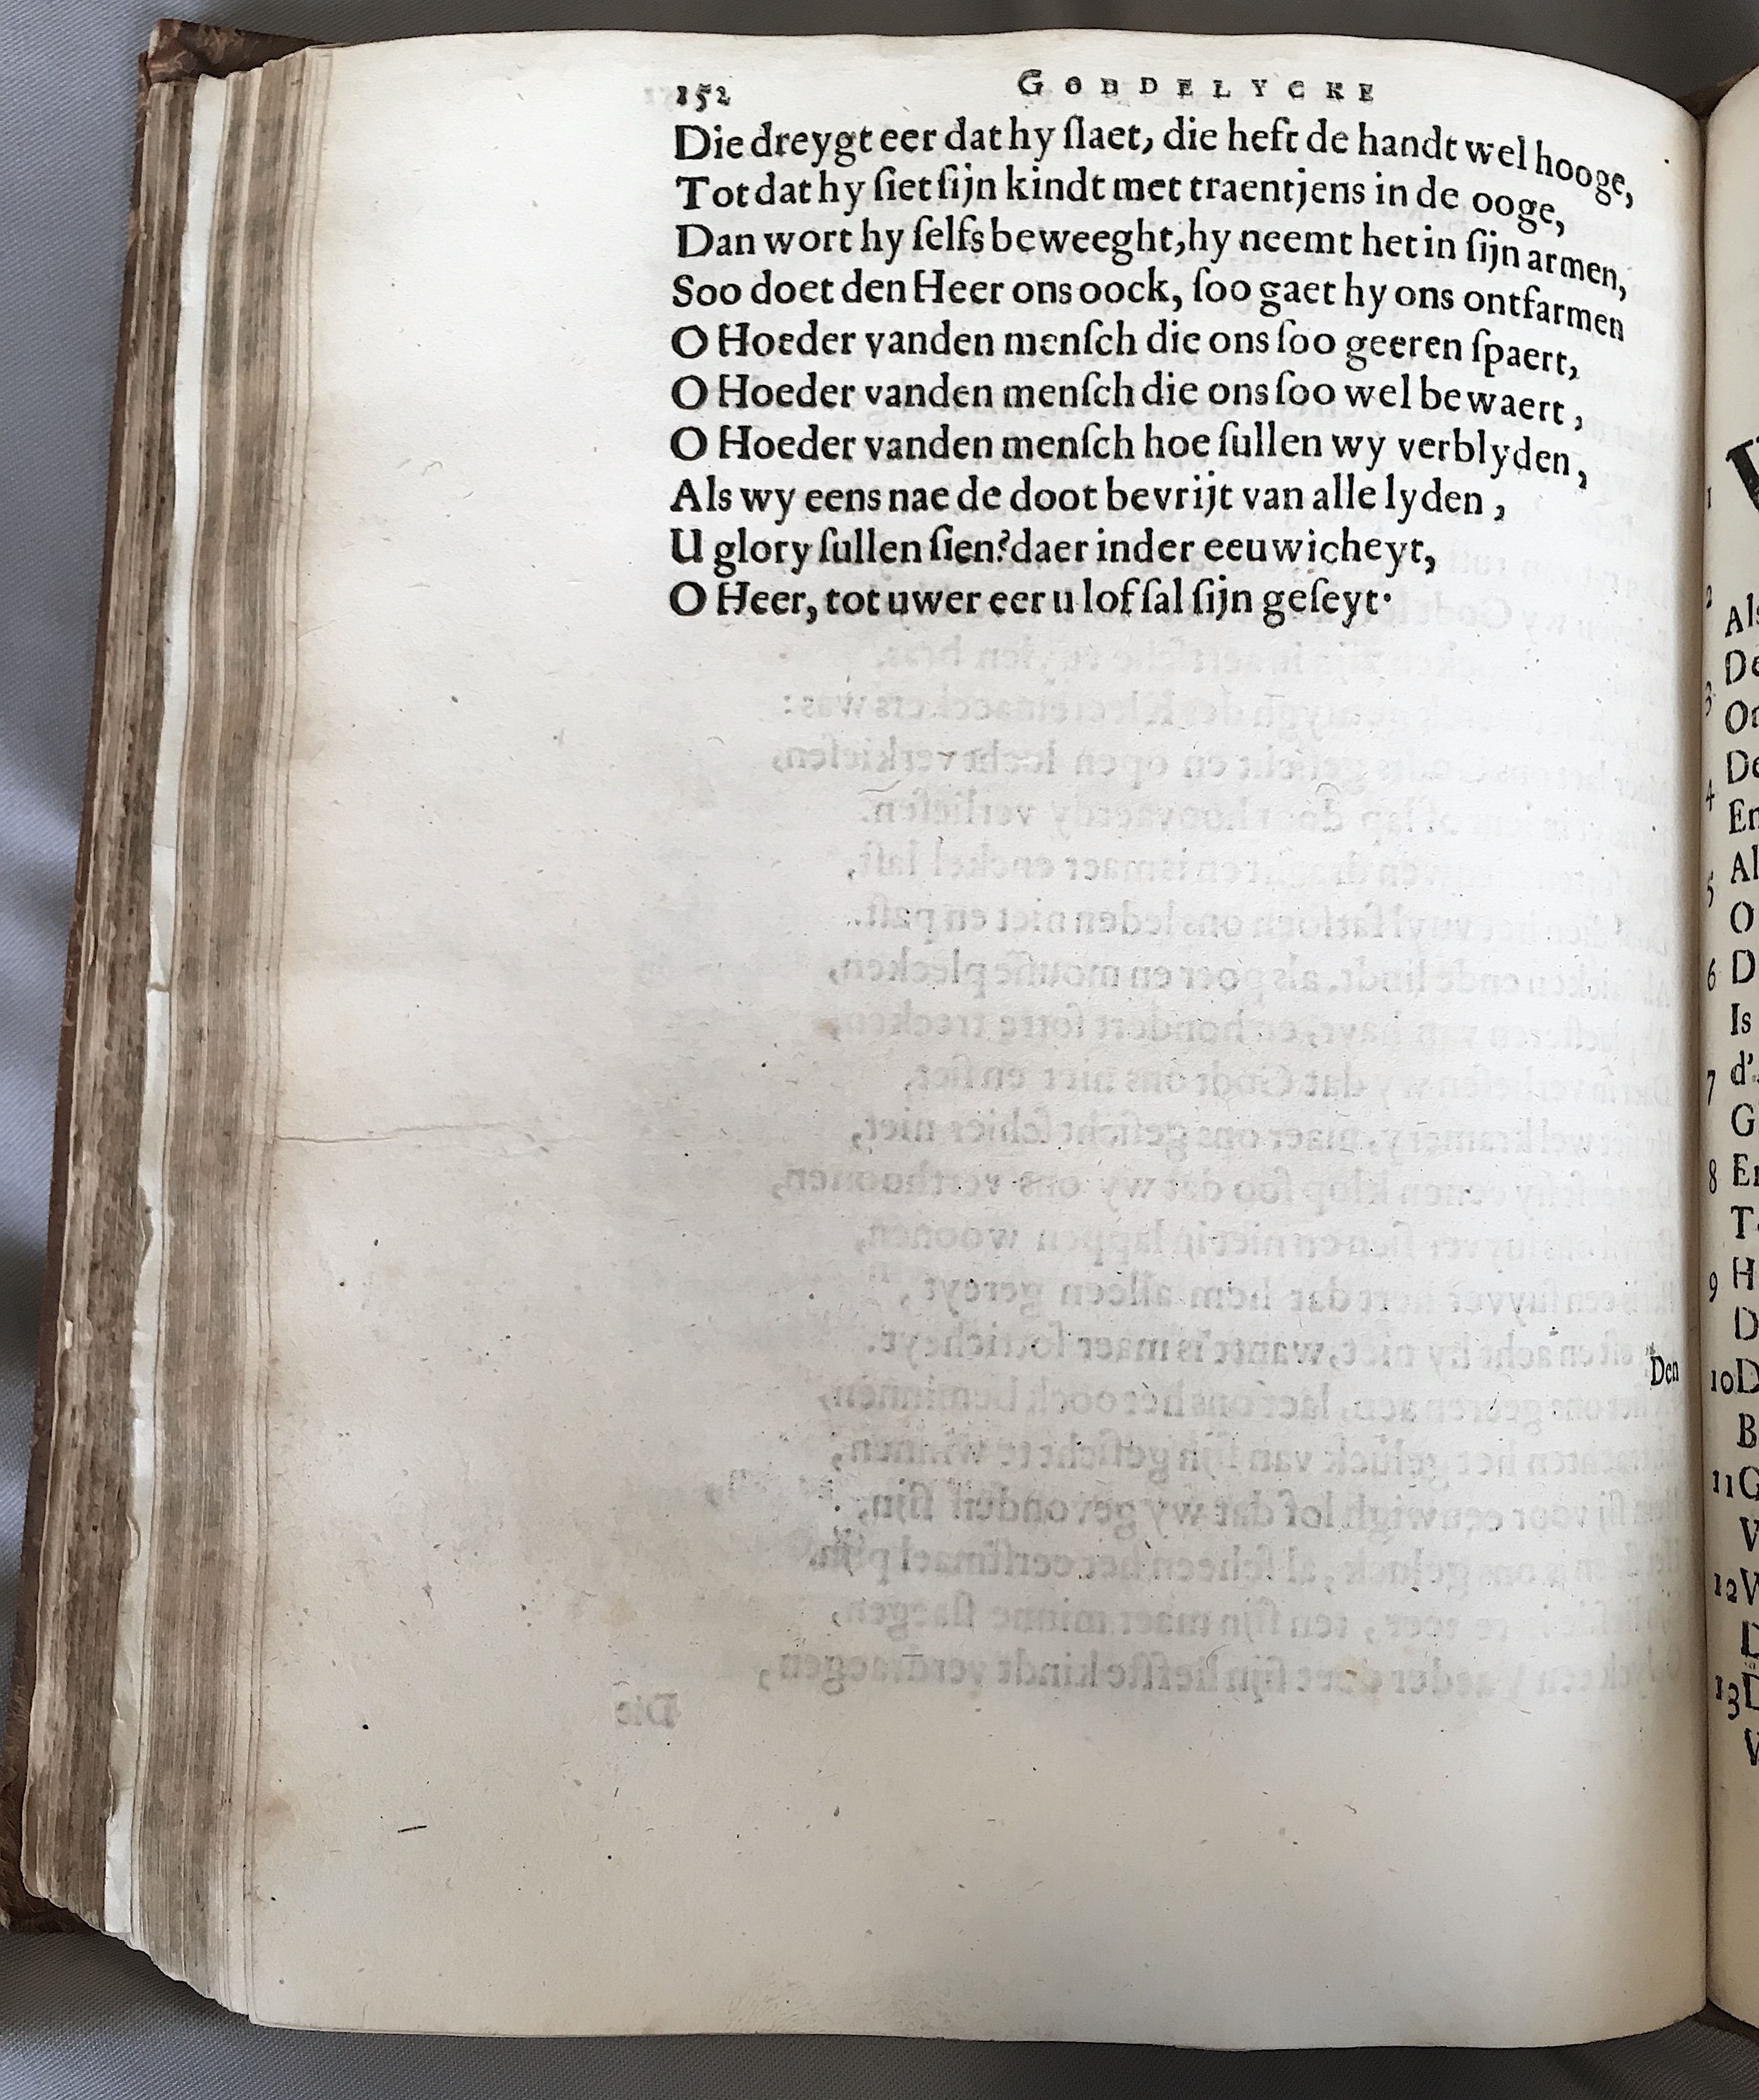 152 GODDELYCKE
Die dreygt eer dat hy ſlaet, die heft de handt wel hooge,
Tot dat hy ſiet ſijn kindt met traentjens in de ooge,
Dan wort hy ſelfs beweeght, hy neemt het in ſijn armen,
Soo doet den Heer ons oock, ſoo gaet hy ons ontfarmen
O Hoeder vanden menſch die ons ſoo geeren ſpaert,
O Hoeder vanden menſch die ons ſoo wel bewaert,
O Hoeder vanden menſch hoe ſullen wy verblyden,
Als wy eens nae de doot bevrijt van alle lyden,
U glory ſullen ſien? daer inder eeuwicheyt,
O Heer, tot uwer eer u lof ſal ſijn geſeyt.
Den
1
2
Als
De
3
De
4
En
Al
5
O
6 D
Is
7 d'
G
8
T
9 H
D
10 D
B
11 G
V
12 V
D
13 D
V